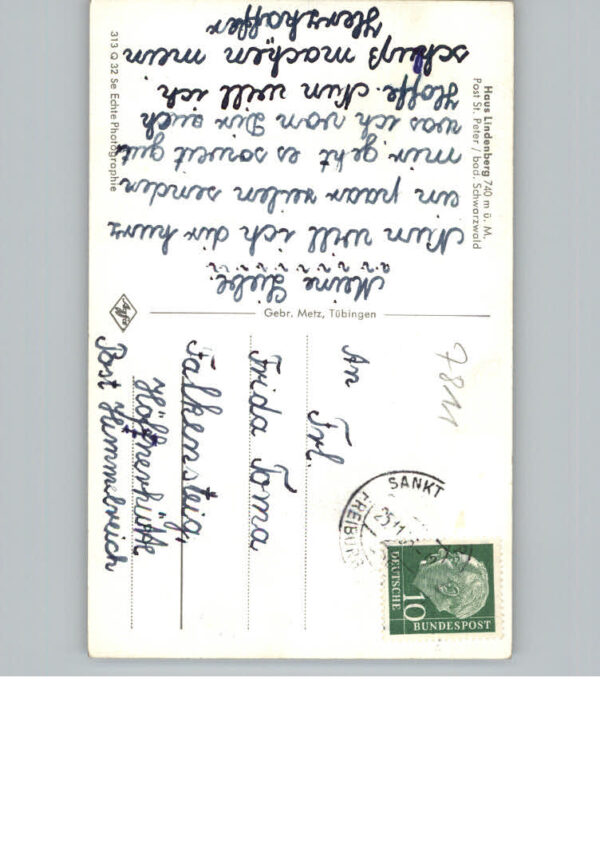 Haus Lindenberg 740 m ü. M.
Post St. Peter / bad. Schwarzwald
Meine Liebe.
Nun will ich dir kurz
ein paar zeilen senden
mir geht es soweit gut
was ich von Dir auch
Hoffe. Nun will ich
schluß machen mein
Herzkaffer
313 Q 32 Se Echte Photographie
Gebr. Metz, Tübingen
Agfa
7811
SANKT
FREIBURG
25.11.
DEUTSCHE
BUNDESPOST
10
An
Frl.
Frida Toma
Falkensteig,
Höfnerhütte
Post Himmelreich